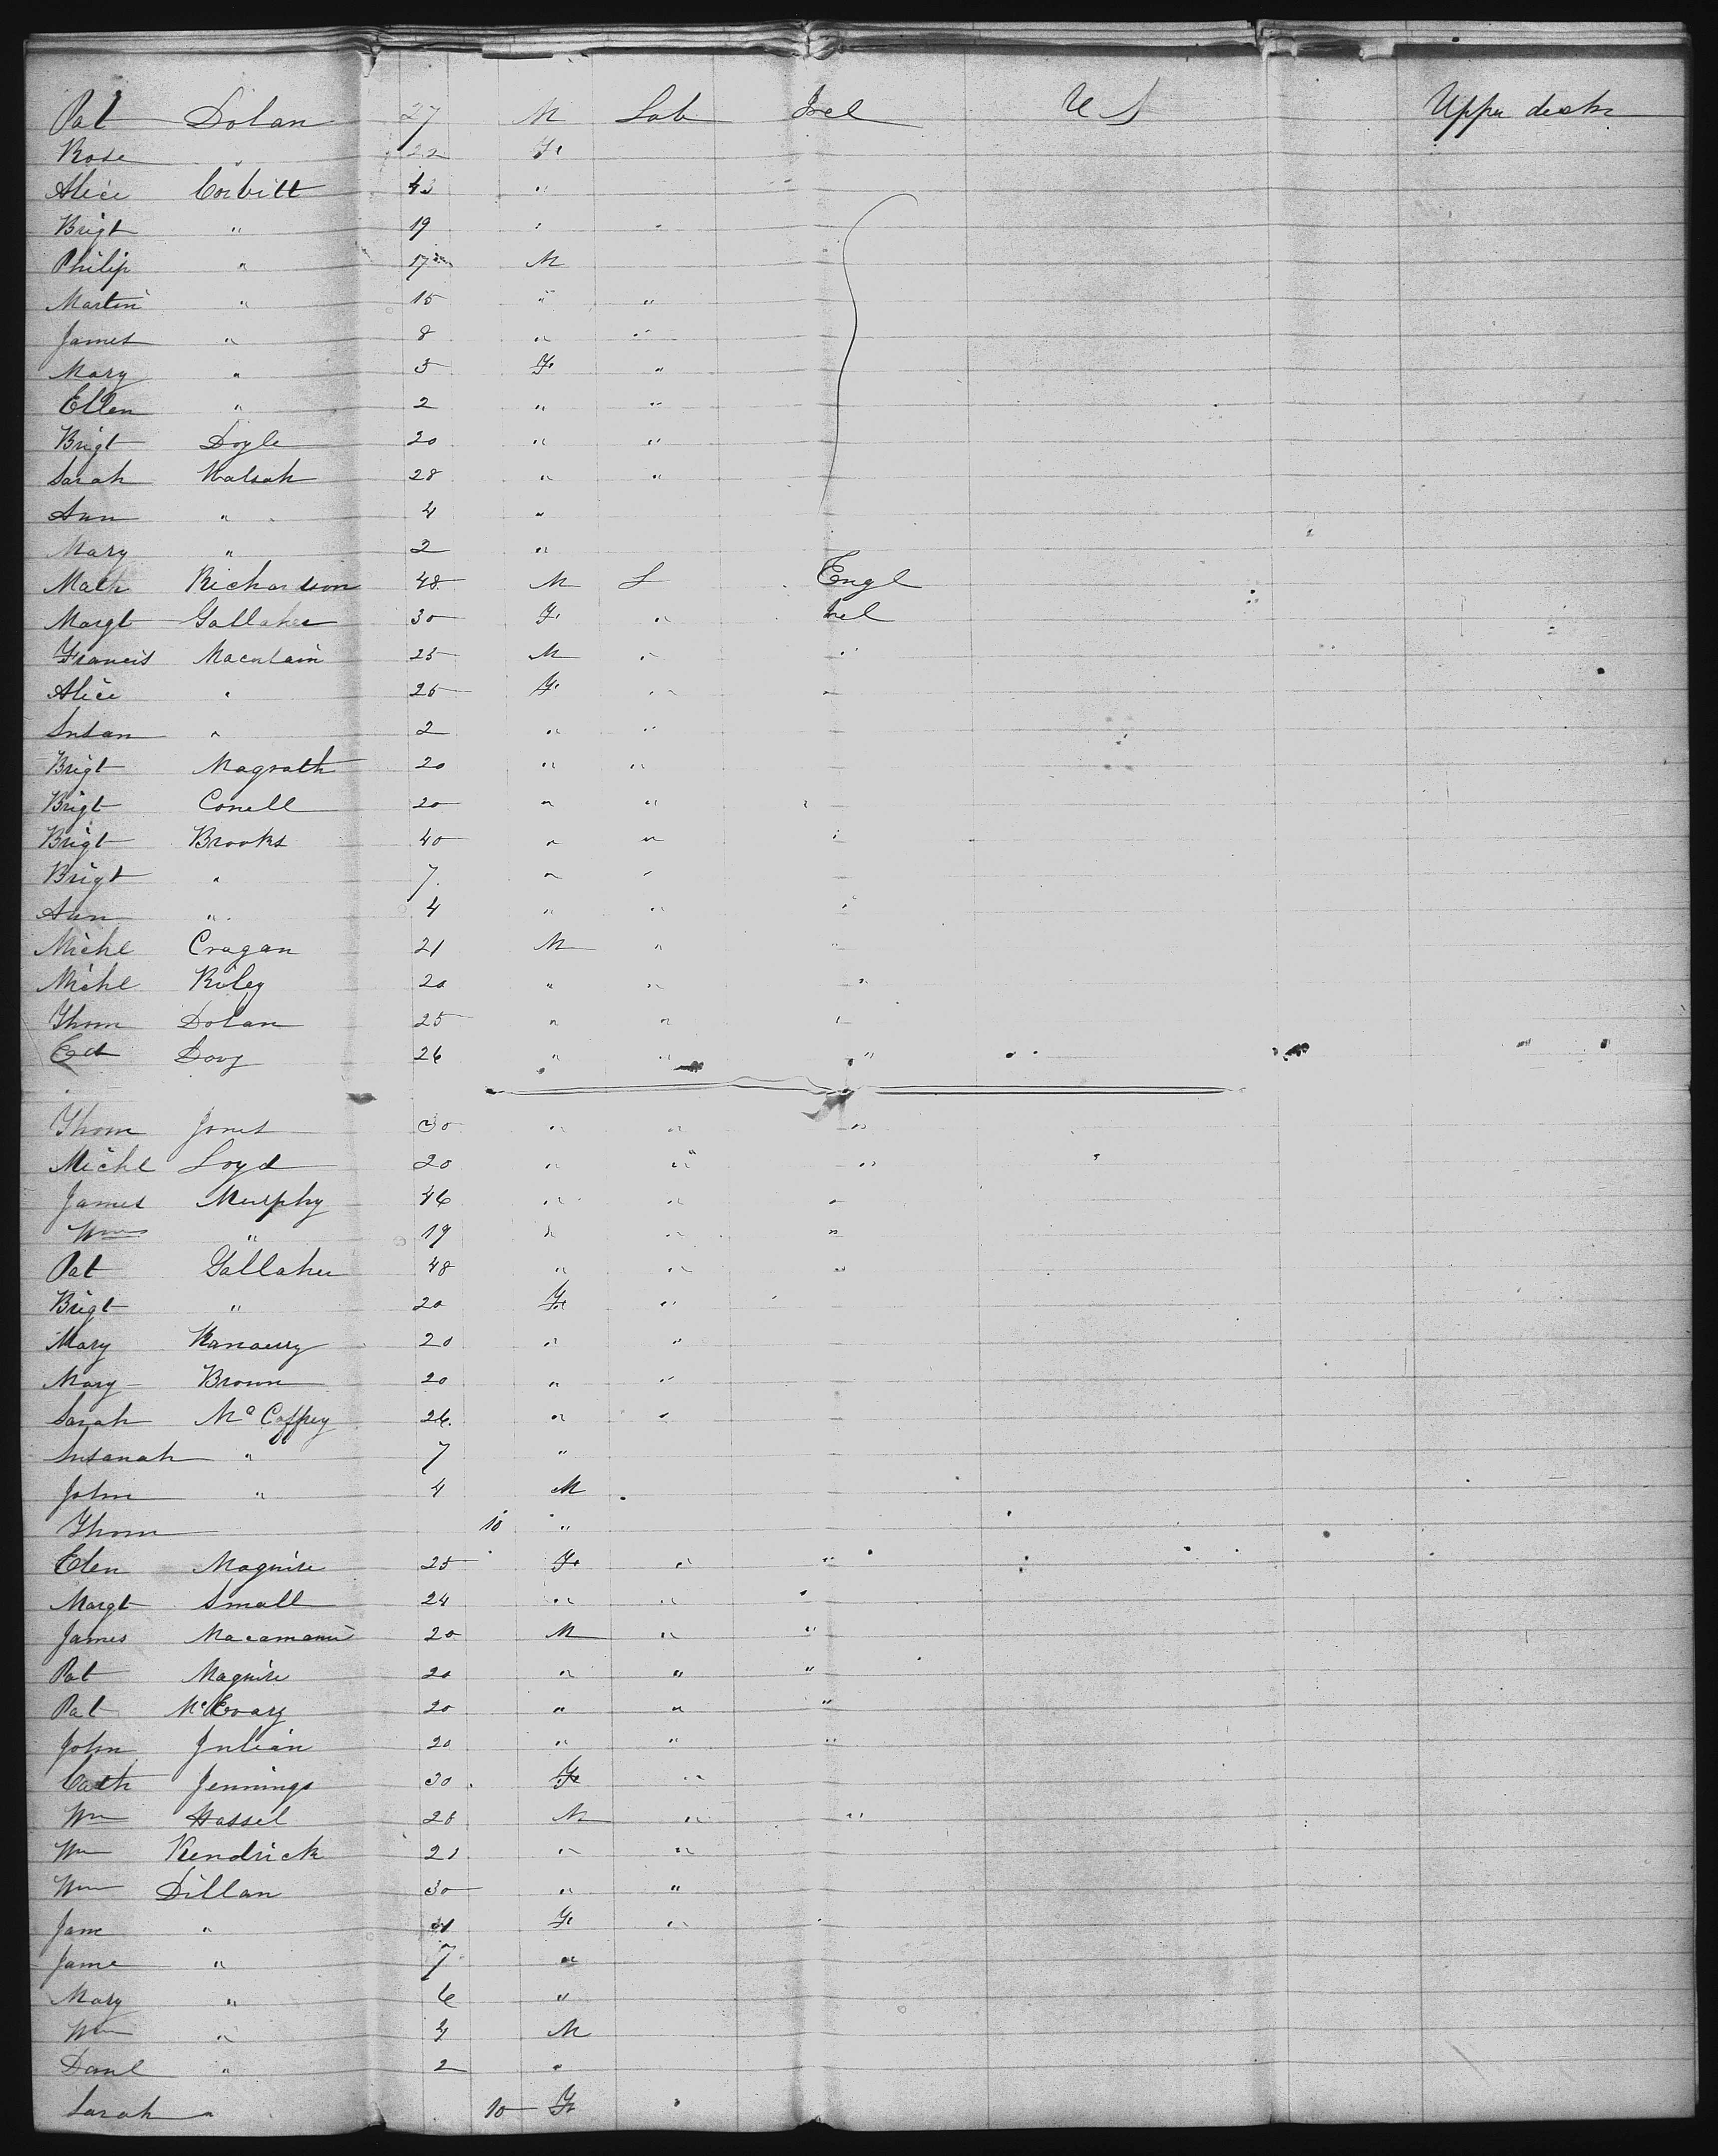 Pat Dolan 27 M Lab Irel U S Upper decks
Rose " 22 Fe
Alice Corbitt 43 "
Brigt " 19 "
Philip " 17 M
Martin " 15 " "
James " 8 " "
Mary " 5 Fe "
Ellen " 2 " "
Brigt Doyle 20 " "
Sarah Walsah 28 " "
Ann " 4 "
Mary " 2 "
Math Richardson 48 M L Engl
Margt Gallaher 30 Fe " Irel
Francis 25 M " "
Alice " 25 Fe " "
Susan " 2 " "
Brigt Magrath 20 " "
Brigt Conell 20 " "
Brigt Brooks 40 " " "
Brigt " 7 " "
Ann " 4 " " "
Michl Cragan 21 M " "
Michl Riley 20 " " "
Thom Dolan 25 " " "
Ed 26 " " "
Thom Jones 30 " " "
Michl Loyd 20 " " "
James Murphy 46 " " "
Wm " 19 " " "
Pat Gallaher 48 " " "
Brigt " 20 Fe "
Mary 20 " "
Mary Brown 20 " "
Sarah Ma Caffrey 26 " "
Susanah " 7 "
John " 4 M
Thom 10 "
Elen Maguire 25 Fe " "
Margt Small 24 " " "
James 20 M " "
Pat Maguire 20 " " "
Pat 20 " " "
John Julian 20 " " "
Cath Jennings 30 Fe "
Wm Hassel 28 M " "
Wm Kendrick 21 " "
Wm Dillan 30 " "
Jane " Fe "
Jane " 7 "
Mary " 6 "
Wm " 4 M
Danl " 2 "
Sarah " 10 Fe "